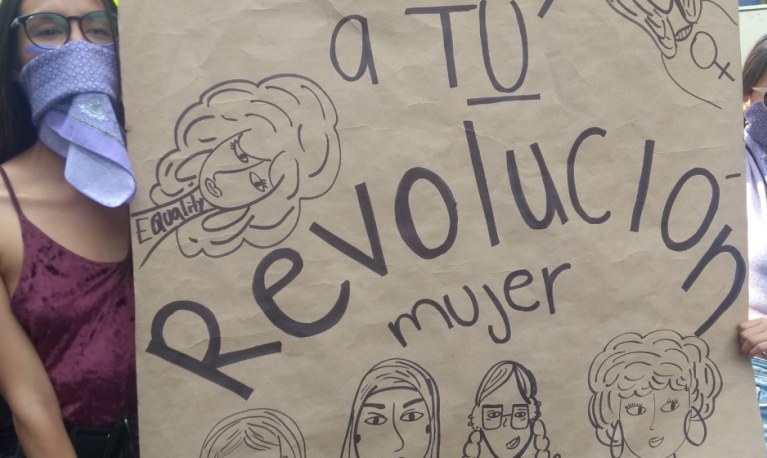 a TÚ
Equality
Revolución
mujer